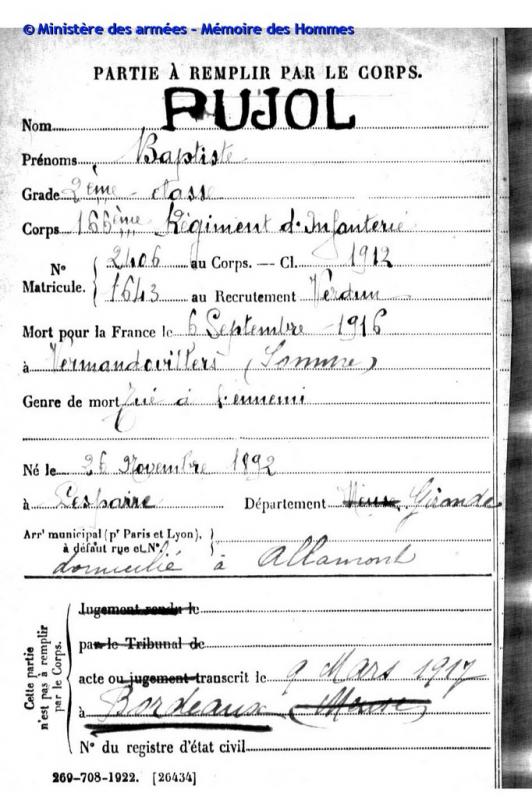 © Ministère des armées - Mémoire des Hommes
PARTIE À REMPLIR PAR LE CORPS.
Nom PUJOL
Prénoms Baptiste
Grade 2ème classe
Corps 166ème Régiment d'Infanterie
N° Matricule. { 2406 au Corps. — Cl. 1912
1643 au Recrutement Verdun
Mort pour la France le 6 Septembre 1916
à Vermandovillers (Somme)
Genre de mort Tué à l'ennemi
Né le 26 Novembre 1892
à Lesparre Département Meuse Gironde
Arrt municipal (pr Paris et Lyon),
à défaut rue et N°. }
domicilié à Allamont
Cette partie n'est pas à remplir par le Corps.
Jugement rendu le
par le Tribunal de
acte ou jugement transcrit le 9 Mars 1917
à Bordeaux (Meuse)
N° du registre d'état civil
269-708-1922. [26434]